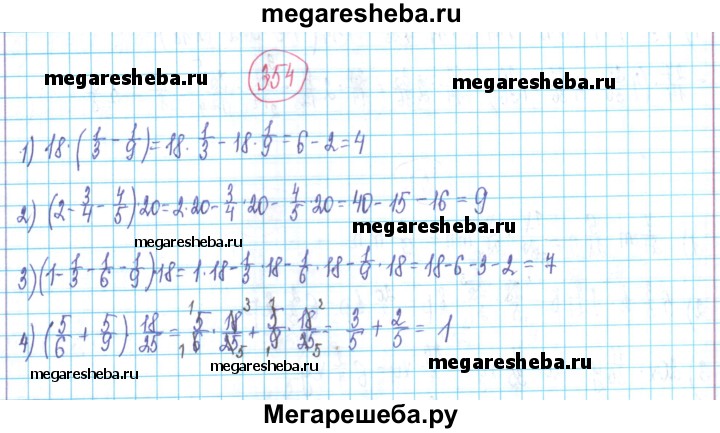 megaresheba.ru
354
megaresheba.ru
megaresheba.ru
1) 18·(1/3 − 1/9) = 18·1/3 − 18·1/9 = 6 − 2 = 4
2) (2 − 3/4 − 4/5)·20 = 2·20 − 3/4·20 − 4/5·20 = 40 − 15 − 16 = 9
megaresheba.ru
megaresheba.ru
3) (1 − 1/3 − 1/6 − 1/9)·18 = 1·18 − 1/3·18 − 1/6·18 − 1/9·18 = 18 − 6 − 3 − 2 = 7
4) (5/6 + 5/9)·18/25 = 5/6·18/25 + 5/9·18/25 = 3/5 + 2/5 = 1
megaresheba.ru
megaresheba.ru
Мегарешеба.ру